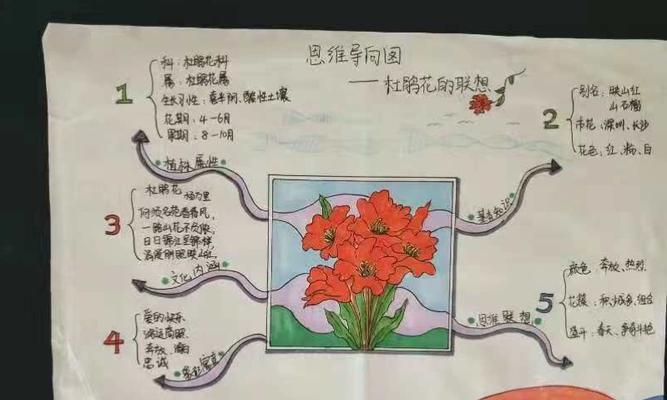 思维导向图
——杜鹃花的联想
1
科：杜鹃花科
属：杜鹃花属
生长习性：喜半阴、酸性土壤
花期：4-6月
果期：8-10月
植株属性
2
别名：映山红
山石榴
市花：深圳、长沙
花色：红、粉、白
基本知识
3
杜鹃花 杨万里
何须名苑看春风，
一路山花不负侬，
日日锦江呈锦样，
清溪倒照映山红。
文化内涵
4
爱的快乐
鸿运高照
奔放、
忠诚
寓意
5
颜色：奔放、热烈
花簇：积少成多、组合
盛开：春天、争奇斗艳
思维联想